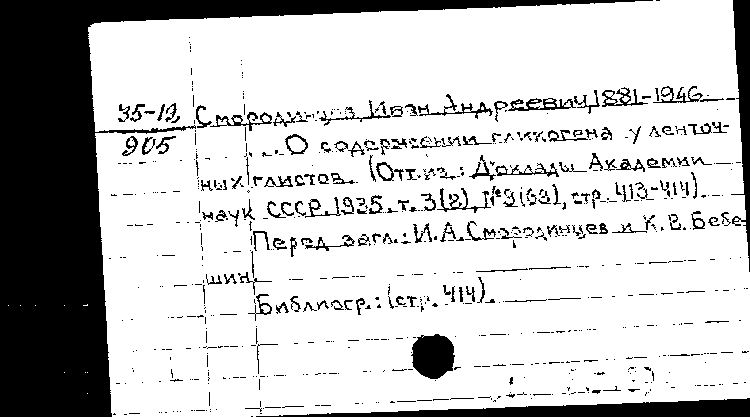 35-12 Смородинцев, Иван Андреевич, 1881-1946.
905 ...О содержении гликогена у ленточ-
ных глистов. (Отт. из: Доклады Академии
наук СССР. 1935. т. 3(8), №9(69), стр. 413-414).
Перед загл.: И.А. Смородинцев и К.В. Бебе-
шин.
Библиогр.: (стр. 414).